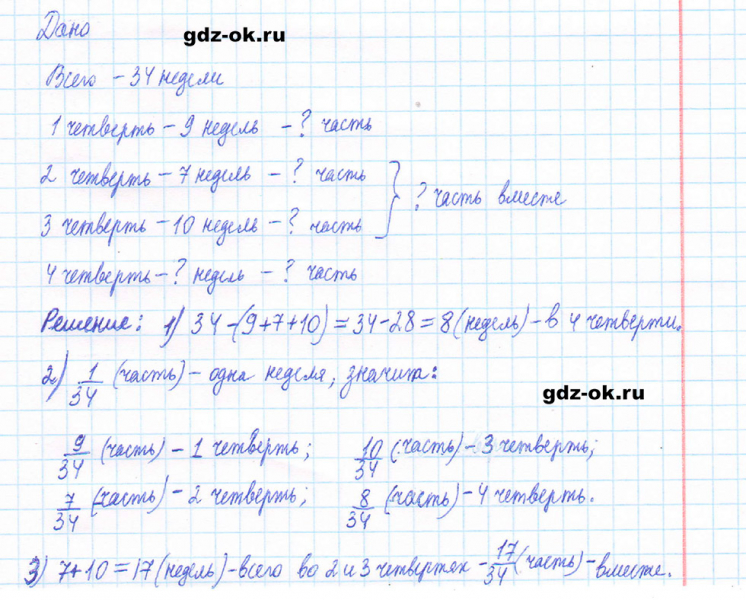 Дано
gdz-ok.ru
Всего – 34 недели
1 четверть – 9 недель – ? часть
2 четверть – 7 недель – ? часть
? часть вместе
3 четверть – 10 недель – ? часть
4 четверть – ? недель – ? часть
Решение: 1) 34 – (9+7+10) = 34 – 28 = 8 (недель) – в 4 четверти.
2) 1/34 (часть) – одна неделя, значит:
gdz-ok.ru
9/34 (часть) – 1 четверть; 10/34 (часть) – 3 четверть;
7/34 (часть) – 2 четверть; 8/34 (часть) – 4 четверть.
3) 7+10 = 17 (недель) – всего во 2 и 3 четвертях – 17/34 (часть) – вместе.